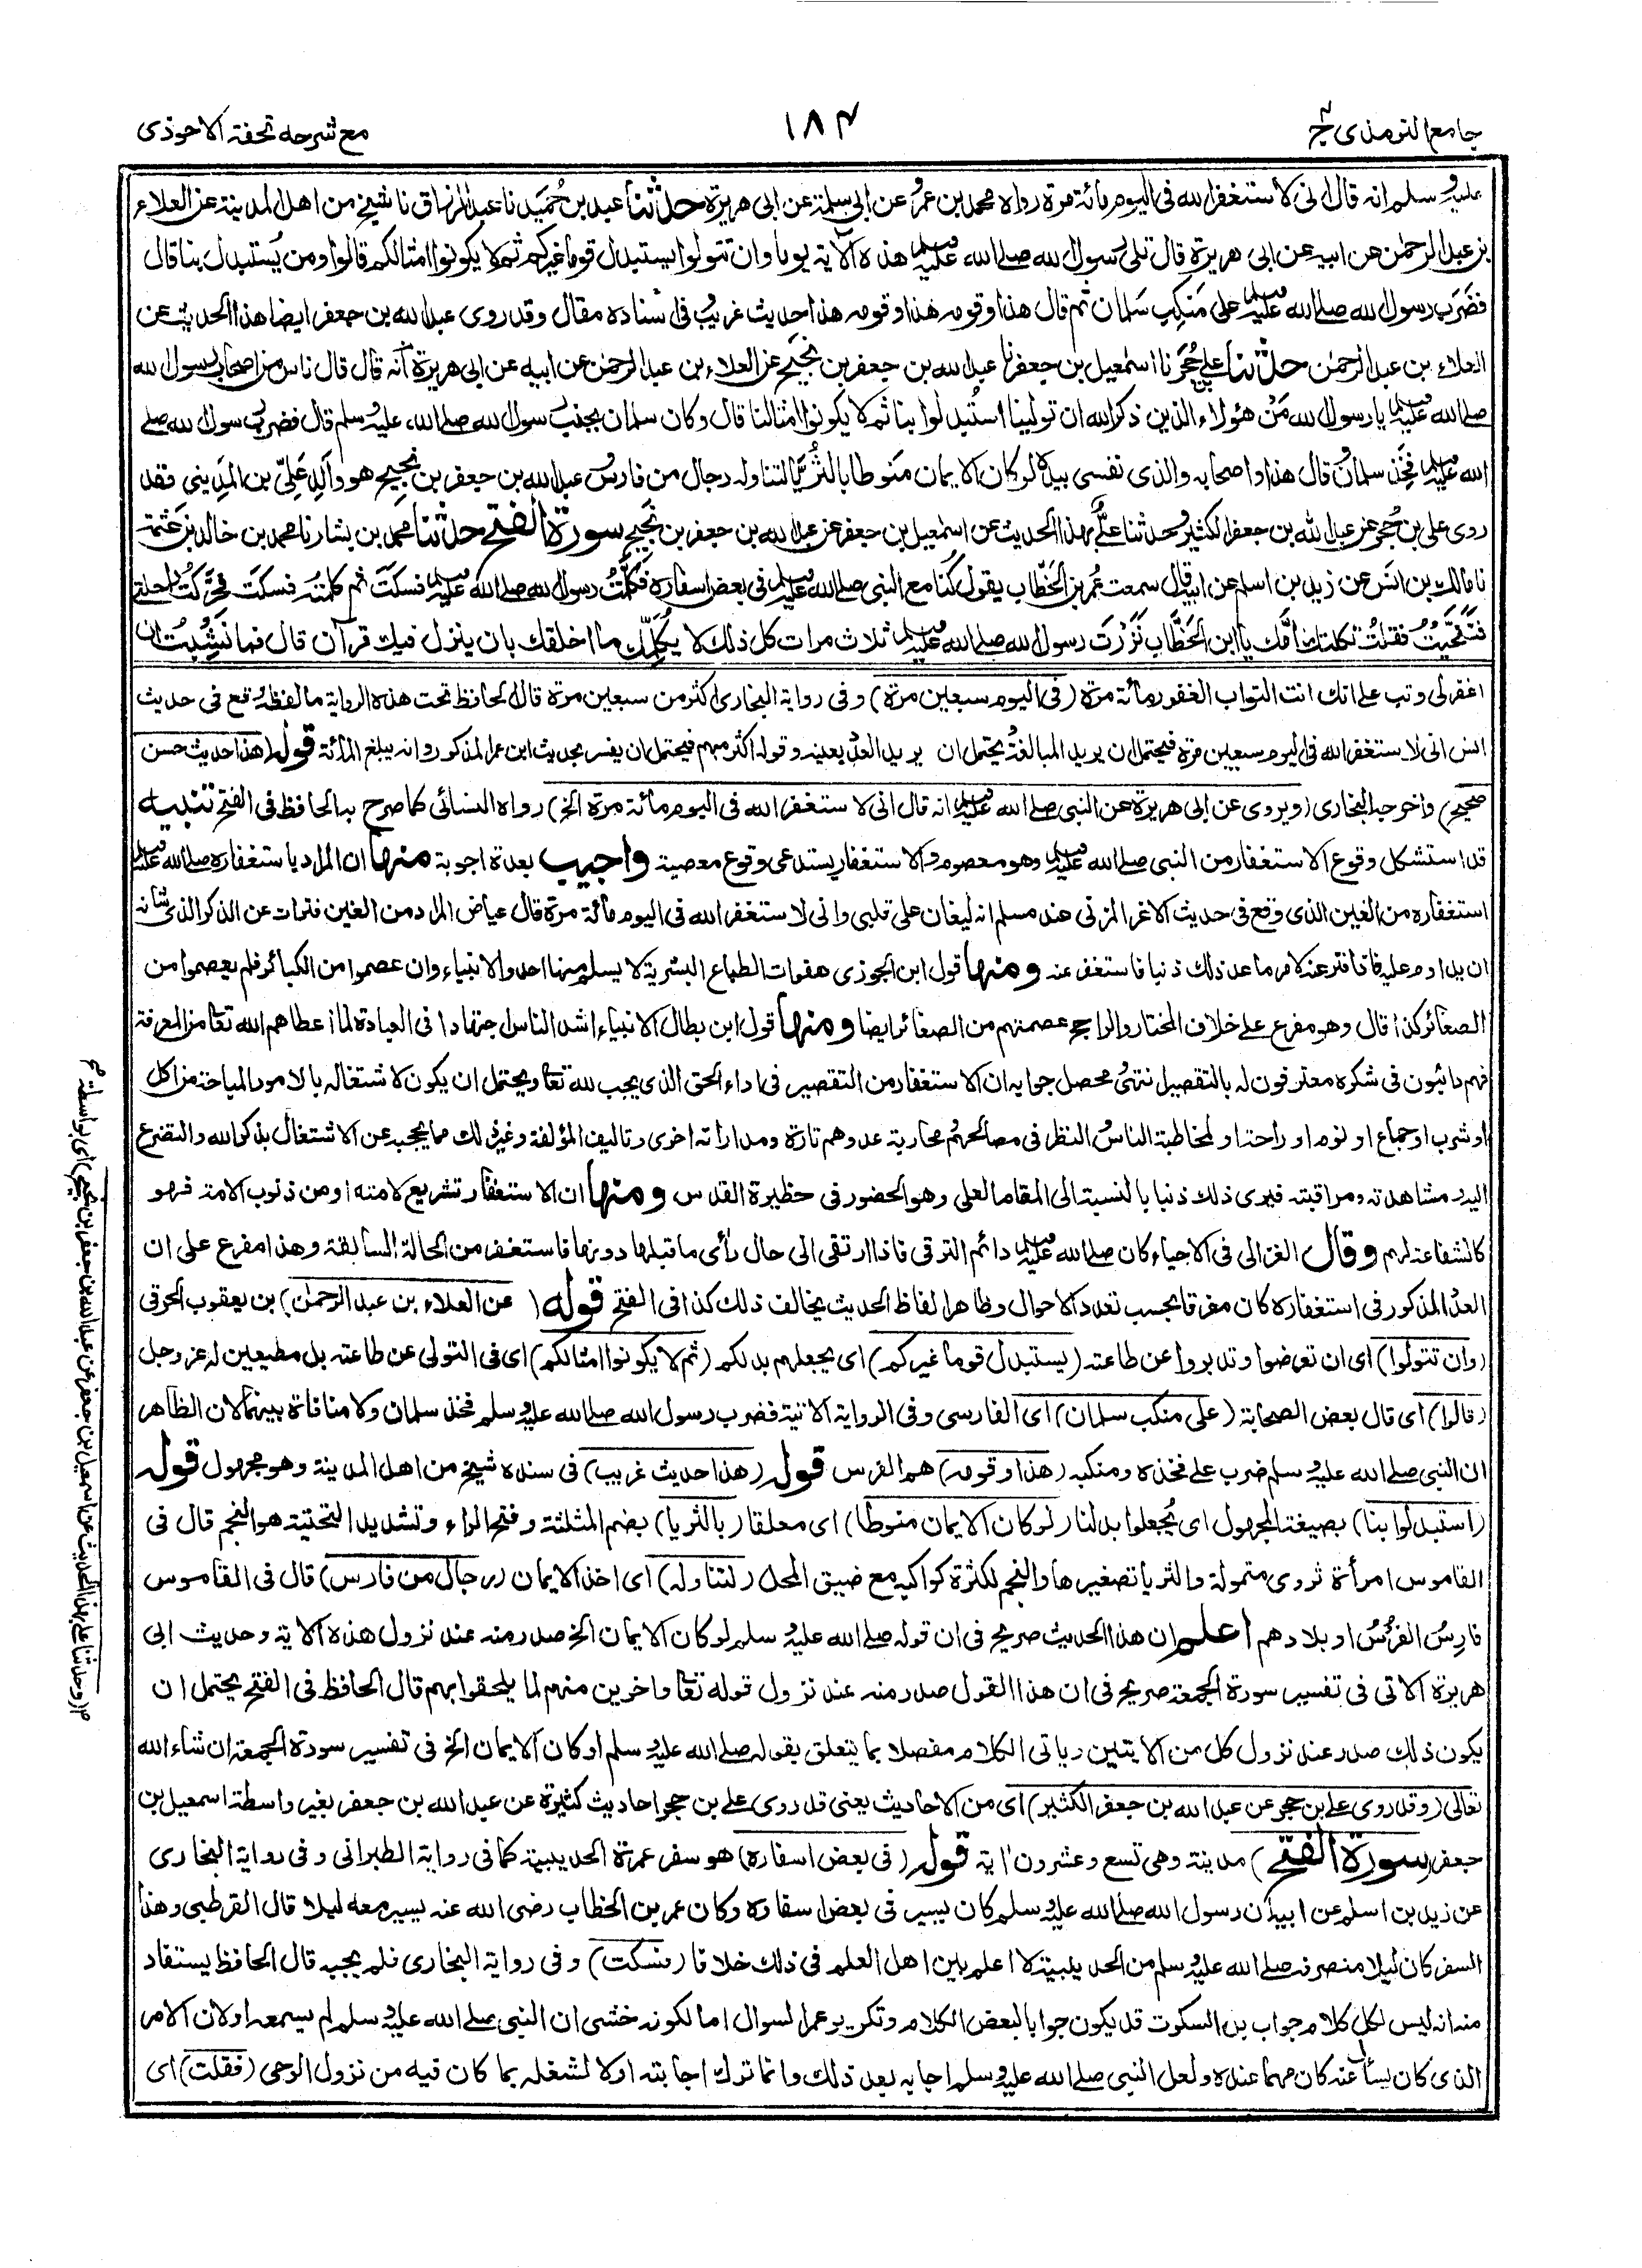 جامع الترمذي ج ٤
١٨٤
مع شرحه تحفة الاحوذى
عليه وسلم انه قال انى لاستغفر الله فى اليوم مائة مرة رواه محمد بن عمرو عن ابى سلمة عن ابى هريرة حدثنا عبد بن حُمَيد نا عبد الرزاق نا شيخ من اهل المدينة عن العلاء
بن عبد الرحمٰن عن ابيه عن ابى هريرة قال تلى رسول الله صلى الله عليه وسلم هذه الآية يوما وان تتولوا يستبدل قوما غيركم ثم لا يكونوا امثالكم قالوا ومن يُستبدل بنا قال
فضَرَب رسول الله صلى الله عليه وسلم على مَنكِب سَلمان ثم قال هذا وقومه هذا وقومه هذا حديث غريب فى اسناده مقال وقد روى عبد الله بن جعفر ايضا هذا الحديث عن
العلاء بن عبد الرحمٰن حدثنا على بن حُجر نا اسمٰعيل بن جعفر نا عبد الله بن جعفر بن نجيح عن العلاء بن عبد الرحمٰن عن ابيه عن ابى هريرة أنه قال قال ناس من اصحاب رسول الله
صلى الله عليه وسلم يا رسول الله مَن هٰؤلاء الذين ذكر الله ان تولينا استُبدلوا بنا ثم لا يكونوا امثالنا قال وكان سلمان بجنب رسول الله صلى الله عليه وسلم قال فضرب رسول الله صلى
الله عليه وسلم فخذ سلمان وقال هذا واصحابه والذى نفسى بيده لو كان الايمان مَنوطا بالثُّريا لتناوله رجال من فارس عبد الله بن جعفر بن نجيح هو والد عَلِيّ بن المدِيني فقد
روى على بن حُجر عن عبد الله بن جعفر الكثير وحدثنا علىٌّ بهذا الحديث عن اسمٰعيل بن جعفر عن عبد الله بن جعفر بن نجيح سورة الفتح حدثنا محمد بن بشار نا محمد بن خالد بن عَثمة
نا مالك بن انس عن زيد بن اسلم عن ابيه قال سمعت عُمر بن الخطّاب يقول كُنا مع النبى صلى الله عليه وسلم فى بعض اسفاره فكلمتُ رسول الله صلى الله عليه وسلم فسكتَ ثم كلمته فسكت فحرّكتُ راحلتى
فتنحّيتُ فقلتُ ثكلتك أمُّك يا ابن الخطّاب نَزرتَ رسول الله صلى الله عليه وسلم ثلاث مرات كل ذلك لا يكلمك ما اخلقك بان ينزل فيك قرآن قال فما نَشِبتُ ان
اغفر لى وتب على انك انت التواب الغفور مائة مرة (فى اليوم سبعين مرة) وفى رواية البخارى اكثر من سبعين مرة قال الحافظ تحت هذه الرواية ما لفظه وقع فى حديث
انس انى لاستغفر الله فى اليوم سبعين مرة فيحتمل ان يريد المبالغة ويحتمل ان يريد العدد بعينه وقوله اكثر مبهم فيحتمل ان يفسر بحديث ابن عمر المذكور وانه يبلغ المائة قوله (هذا حديث حسن
صحيح) واخرجه البخارى (ويروى عن ابى هريرة عن النبى صلى الله عليه وسلم انه قال انى لاستغفر الله فى اليوم مائة مرة الخ) رواه النسائى كما صرح به الحافظ فى الفتح تنبيه
قد استشكل وقوع الاستغفار من النبى صلى الله عليه وسلم وهو معصوم والاستغفار يستدعى وقوع معصية واجيب بعدة اجوبة منها ان المراد باستغفاره صلى الله عليه وسلم
استغفاره من الغين الذى وقع فى حديث الاغر المزنى عند مسلم انه ليغان على قلبى وانى لاستغفر الله فى اليوم مائة مرة قال عياض المراد من الغين فترات عن الذكر الذى شانه
ان يداوم عليه فاذا فتر عنه لامر ما عد ذلك ذنبا فاستغفر عنه ومنها قول ابن الجوزى هفوات الطباع البشرية لا يسلم منها احد والانبياء وان عصموا من الكبائر فلم يعصموا من
الصغائر كذا قال وهو مفرع على خلاف المختار والراجح عصمتهم من الصغائر ايضا ومنها قول ابن بطال الانبياء اشد الناس اجتهادا فى العبادة لما اعطاهم الله تعالى من المعرفة
فهم دائبون فى شكره معترفون له بالتقصير انتهى محصل جوابه ان الاستغفار من التقصير فى اداء الحق الذى يجب لله تعالى ويحتمل ان يكون لاشتغاله بالامور المباحة من اكل
او شرب او جماع او نوم او راحة او لمخاطبة الناس والنظر فى مصالحهم ومحاربة عدوهم تارة ومداراته اخرى وتاليف المؤلفة وغير ذلك مما يحجبه عن الاشتغال بذكر الله والتضرع
اليه ومشاهدته ومراقبته فيرى ذلك ذنبا بالنسبة الى المقام العلى وهو الحضور فى حظيرة القدس ومنها ان الاستغفار تشريع لامته او من ذنوب الامة فهو
كالشفاعة لهم وقال الغزالى فى الاحياء كان صلى الله عليه وسلم دائم الترقى فاذا ارتقى الى حال رأى ما قبلها دونها فاستغفر من الحالة السابقة وهذا مفرع على ان
العدد المذكور فى استغفاره كان مفرقا بحسب تعدد الاحوال وظاهر الفاظ الحديث يخالف ذلك كذا فى الفتح قوله (عن العلاء بن عبد الرحمٰن) بن يعقوب الحرقى
(وان تتولوا) اى ان تعرضوا وتدبروا عن طاعته (يستبدل قوما غيركم) اى يجعلهم بدلكم (ثم لا يكونوا امثالكم) اى فى التولى عن طاعته بل مطيعين له عز وجل
(قالوا) اى قال بعض الصحابة (على منكب سلمان) اى الفارسى وفى الرواية الاتية فضرب رسول الله صلى الله عليه وسلم فخذ سلمان ولا منافاة بينهما لان الظاهر
ان النبى صلى الله عليه وسلم ضرب على فخذه ومنكبه (هذا وقومه) هم الفرس قوله (هذا حديث غريب) فى سنده شيخ من اهل المدينة وهو مجهول قوله
(استبدلوا بنا) بصيغة المجهول اى يُجعلوا بدلنا (لو كان الايمان منوطا) اى معلقا (بالثريا) بضم المثلثة وفتح الراء وتشديد التحتية هو النجم قال فى
القاموس امرأة ثروى متمولة والثريا تصغيرها والنجم لكثرة كواكبه مع ضيق المحل (لتناوله) اى اخذ الايمان (رجال من فارس) قال فى القاموس
فارِسُ الفُرْسُ او بلادهم اعلم ان هذا الحديث صريح فى ان قوله صلى الله عليه وسلم لو كان الايمان الخ صدر منه عند نزول هذه الاية وحديث ابى
هريرة الاتى فى تفسير سورة الجمعة صريح فى ان هذا القول صدر منه عند نزول قوله تعالى واخرين منهم لما يلحقوا بهم قال الحافظ فى الفتح يحتمل ان
يكون ذلك صدر عند نزول كل من الايتين وياتى الكلام مفصلا بما يتعلق بقوله صلى الله عليه وسلم لو كان الايمان الخ فى تفسير سورة الجمعة ان شاء الله
تعالى (وقد روى على بن حجر عن عبد الله بن جعفر الكثير) اى من الاحاديث يعنى قد روى على بن حجر احاديث كثيرة عن عبد الله بن جعفر بغير واسطة اسمعيل بن
جعفر (سورة الفتح) مدينة وهى تسع وعشرون اية قوله (فى بعض اسفاره) هو سفر عمرة الحديبية كما فى رواية الطبرانى وفى رواية البخارى
عن زيد بن اسلم عن ابيه ان رسول الله صلى الله عليه وسلم كان يسير فى بعض اسفاره وكان عمر بن الخطاب رضى الله عنه يسير معه ليلا قال القرطبى وهذا
السفر كان ليلا منصرفه صلى الله عليه وسلم من الحديبية لا اعلم بين اهل العلم فى ذلك خلافا (فسكت) وفى رواية البخارى فلم يجبه قال الحافظ يستفاد
منه انه ليس لكل كلام جواب بل السكوت قد يكون جوابا لبعض الكلام وتكرير عمر السوال اما لكونه خشى ان النبى صلى الله عليه وسلم لم يسمعه او لان الامر
الذى كان يسأل عنه كان مهما عنده ولعل النبى صلى الله عليه وسلم اجابه بعد ذلك وانما ترك اجابته اولا لشغله بما كان فيه من نزول الوحى (فقلت) اى
(وحدثنا على بهذا الحديث عن اسمعيل بن جعفر عن عبد الله بن جعفر بن نجيح) اى بواسطة